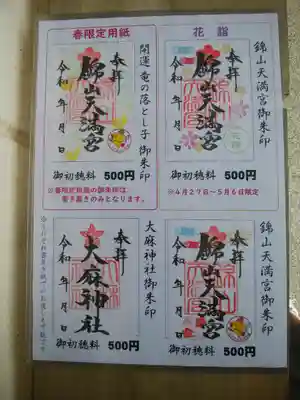 春限定用紙
奉拝
錦山天満宮
令和 年 月 日
開運 竜の落とし子 御朱印
御初穂料 500円
花詣
奉拝
錦山天満宮
令和 年 月 日
錦山天満宮御朱印
御初穂料 500円
※4月27日~5月6日限定
奉拝
大麻神社
令和 年 月 日
大麻神社御朱印
御初穂料 500円
奉拝
錦山天満宮
令和 年 月 日
錦山天満宮御朱印
御初穂料 500円